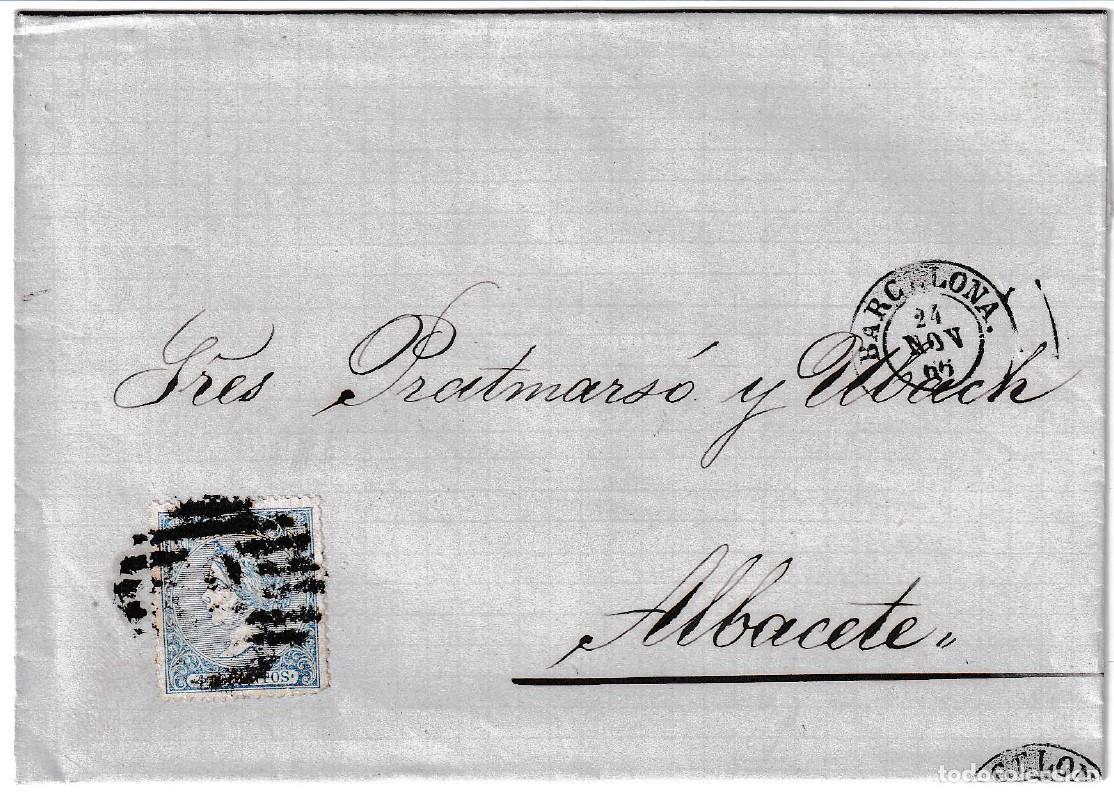 BARCELONA.
24
NOV
Sres Pratmarsó y Ubach
Albacete
todocoleccion